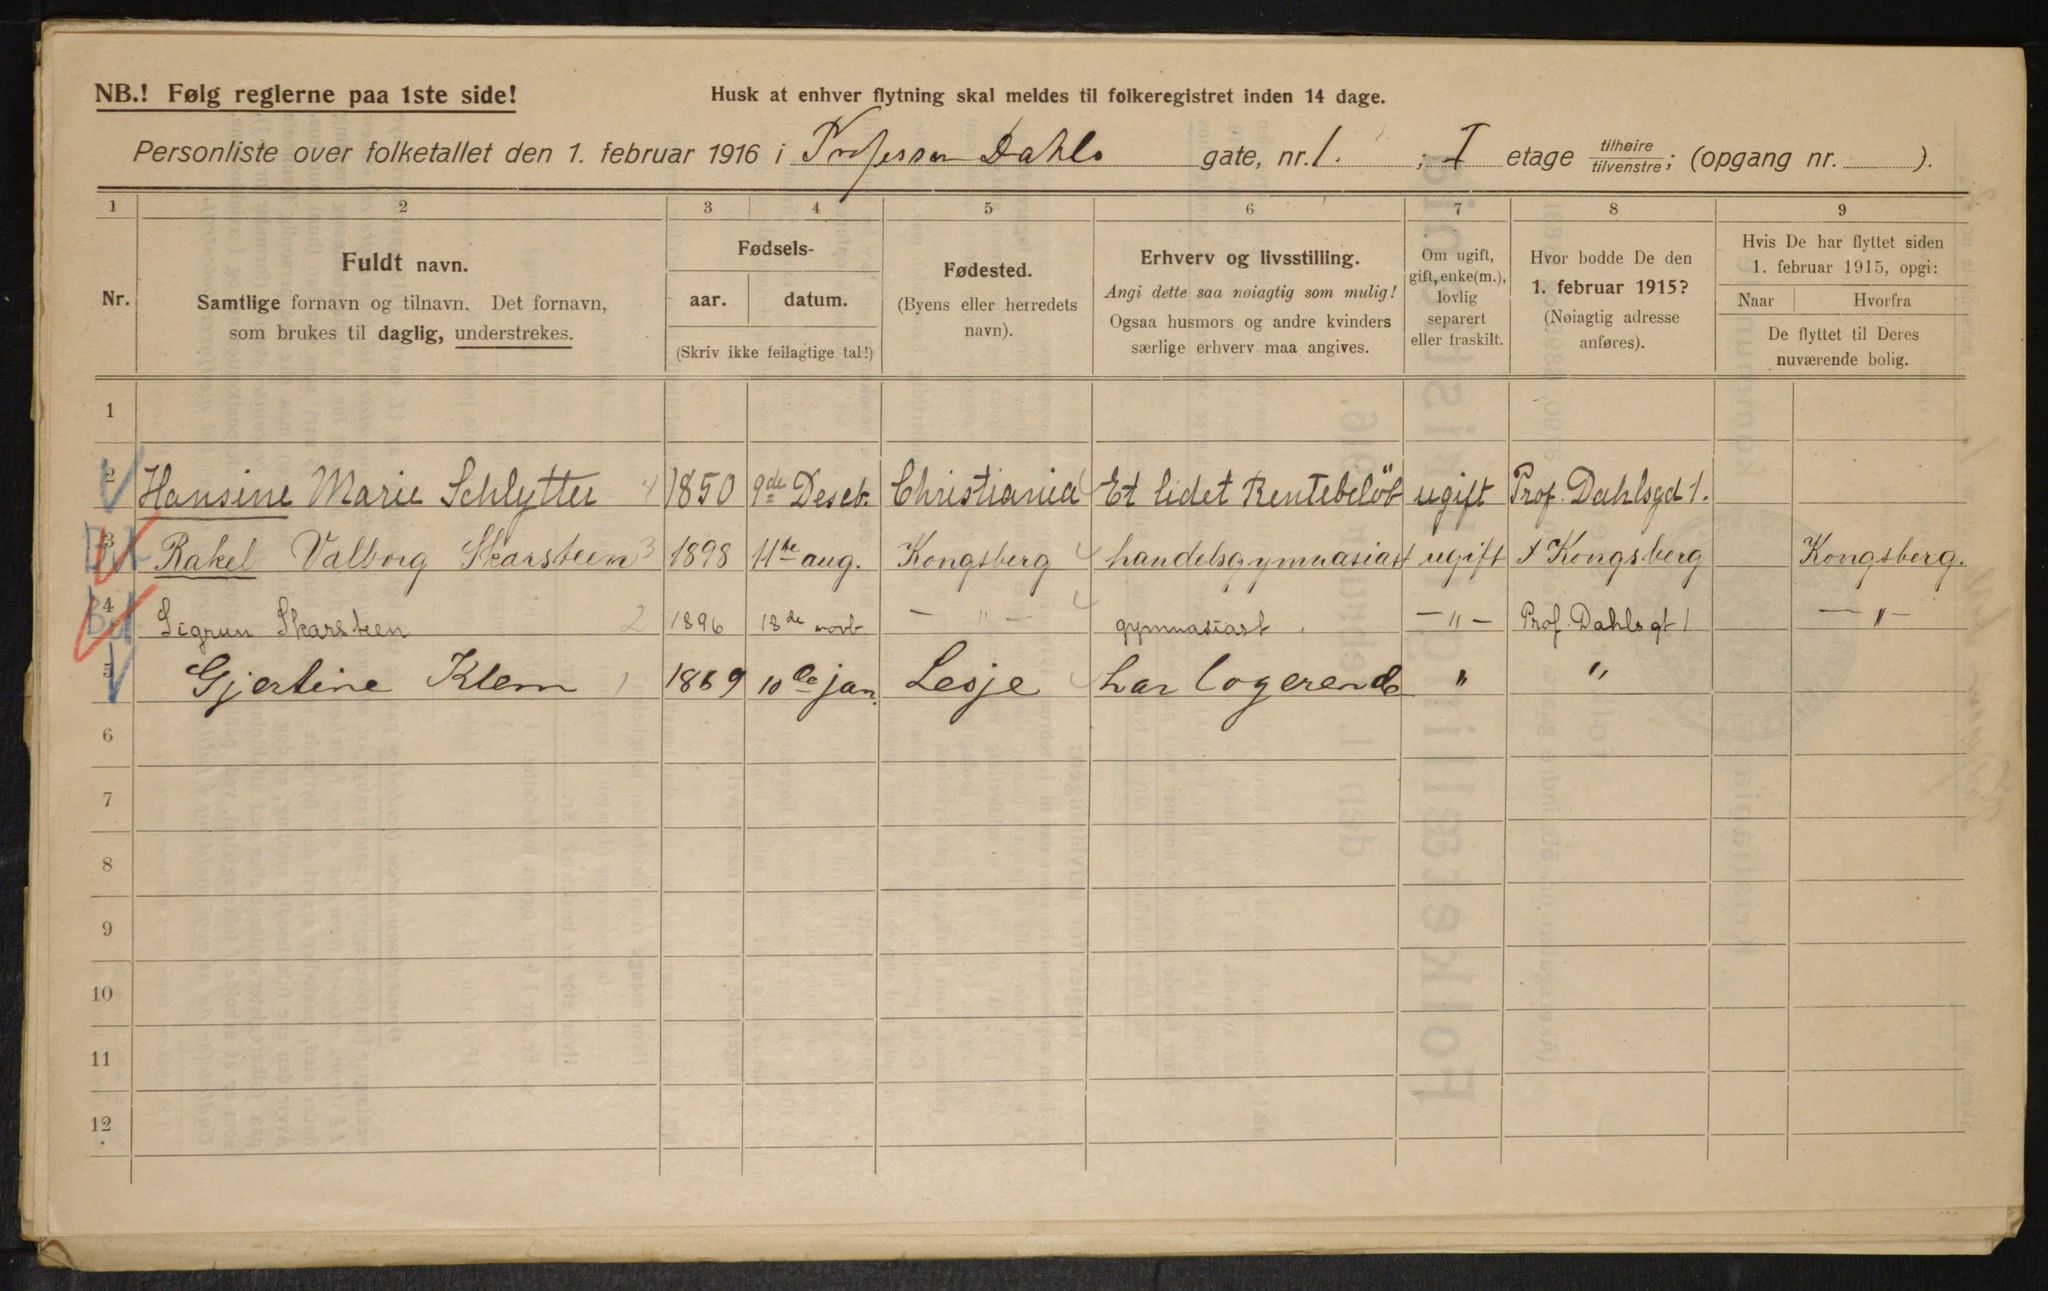 NB.! Følg reglerne paa 1ste side!
Husk at enhver flytning skal meldes til folkeregistret inden 14 dage.
Personliste over folketallet den 1. februar 1916 i Professor Dahls gate, nr. 1. ; I etage tilhøire tilvenstre; (opgang nr. ).
1 2 3 4 5 6 7 8 9
Nr.
Fuldt navn.
Samtlige fornavn og tilnavn. Det fornavn,
som brukes til daglig, understrekes.
Fødsels-
aar. datum.
(Skriv ikke feilagtige tal!)
Fødested.
(Byens eller herredets
navn).
Erhverv og livsstilling.
Angi dette saa nøiagtig som mulig!
Ogsaa husmors og andre kvinders
særlige erhverv maa angives.
Om ugift,
gift, enke(m.),
lovlig
separert
eller fraskilt.
Hvor bodde De den
1. februar 1915?
(Nøiagtig adresse
anføres).
Hvis De har flyttet siden
1. februar 1915, opgi:
Naar Hvorfra
De flyttet til Deres
nuværende bolig.
1
2 Hansine Marie Schlytter 4 1850 9de Desebr. Christiania Et lidet Rentebeløb ugift Prof. Dahlsgd 1.
3 Rakel Valborg Skarsteen 3 1898 11te aug. Kongsberg 4 handelsgymnasiast ugift Kongsberg Kongsberg.
4 Sigrun Skarsteen 2 1896 18de novb — " — 4 gymnasiast — " — Prof. Dahlsgt 1 — " —
5 Gjertine Klem 1 1869 10de jan. Lesje 4 har logerende " "
6
7
8
9
10
11
12